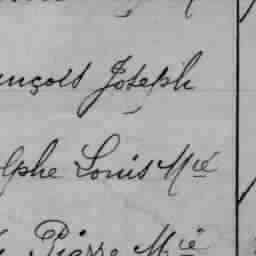 ançois Joseph
olphe Louis Mie
Pierre Mie